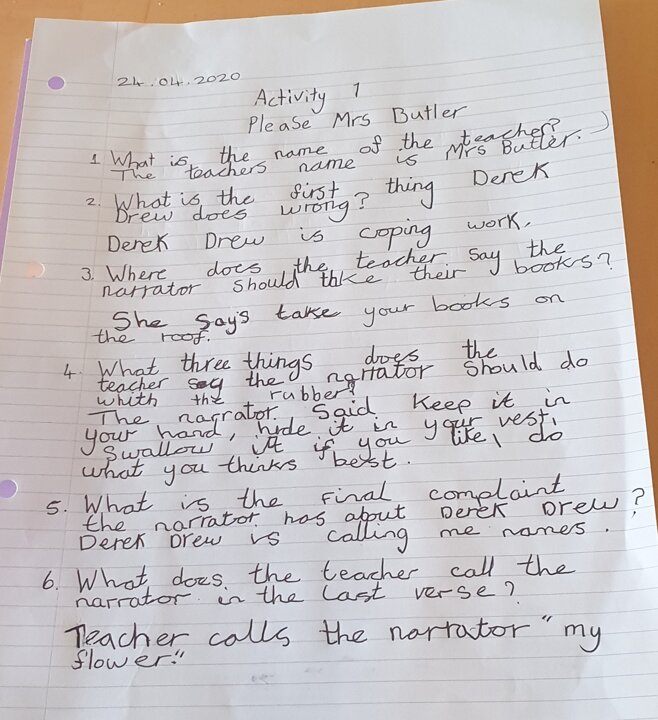 24.04.2020
Activity 1
Please Mrs Butler
1 What is the name of the teacher?
The teachers name is Mrs Butler.
2. What is the first thing Derek
Drew does wrong?
Derek Drew is coping work.
3. Where does the teacher say the
narrator should take their books?
She say's take your books on
the roof.
4. What three things does the
teacher say the narrator should do
whith the rubber?
The narrator Said keep it in
your hand, hide it in your vest,
Swallow it if you like, do
what you thinks best.
5. What is the final complaint
the narrator has about Derek Drew?
Derek Drew is calling me names.
6. What does the teacher call the
narrator in the last verse?
Teacher calls the narrator "my
flower."